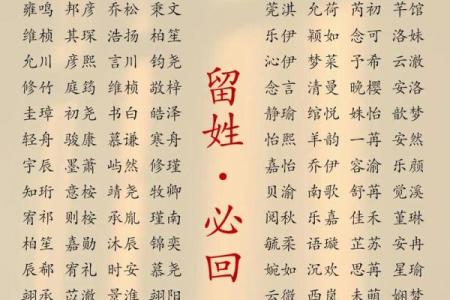 雍鸣 邦彦 乔松 秉文
维桢 其琛 浩扬 柏笙
允川 彦熙 言川 钧尧
修竹 庭筠 维桢 敬梓
圭璋 初尧 书白 皓泽
轻舟 骏康 慕谦 寒舟
宇辰 墨萧 屿然 修瑾
知珩 意桉 靖尧 牧卿
宥祁 则桉 承胤 瑾南
柏笙 嘉勋 沐辰 锦奕
辰郗 宥礼 时安 慕尧
苡澈 景淮 翊阳
留姓·必回
莞淇 允荷 芮初
乐伊 颖如 念可 洛姝
沁伊 梦菜 予希 云澈
念言 清曼 晚樱 安洛
静瑜 绾悦 姝怡 歆梦
怡熙 羊韵 一苒 安然
嘉怡 乔伊 容渝 乐颜
贝渝 南歌 舒苒 觉溪
阅秋 乐嘉 佳禾 堇琳
毓柔 语璇 芷苏 安冉
婉如 沉欢 思苒
云微 西岚 未萌